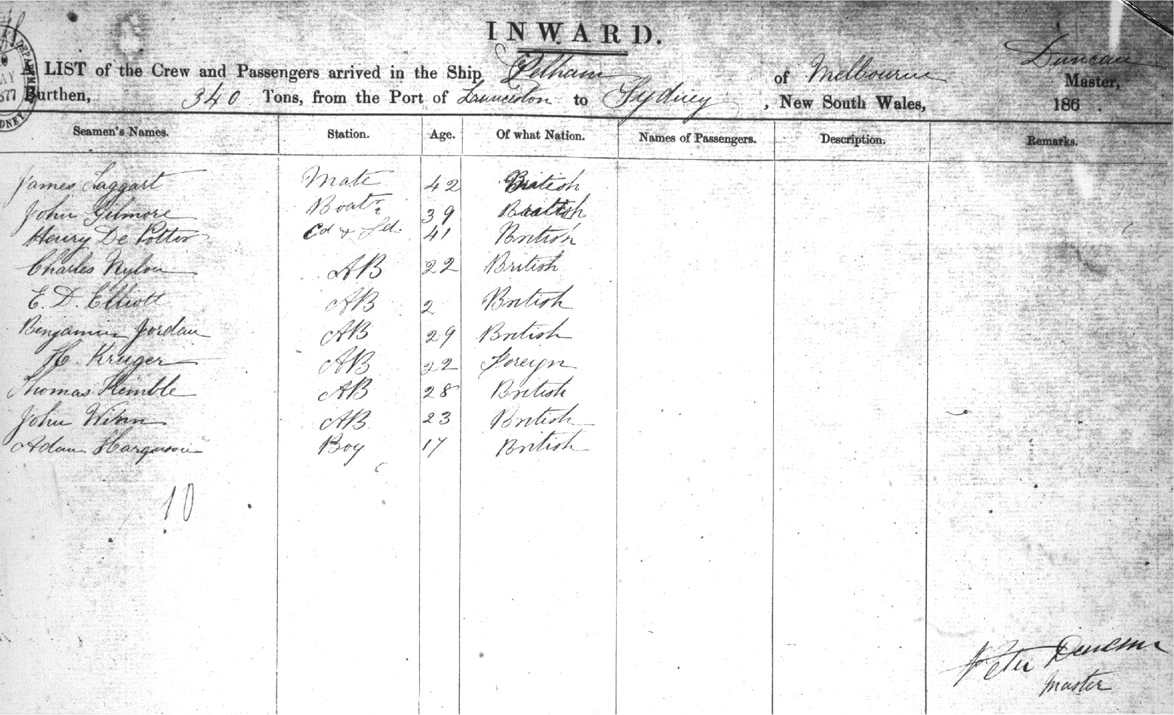 INWARD.
A LIST of the Crew and Passengers arrived in the Ship Pelham of Melbourne Duncan Master,
Burthen, 340 Tons, from the Port of Launceston to Sydney, New South Wales, 186
Seamen's Names. Station. Age. Of what Nation. Names of Passengers. Description. Remarks.
James Taggart Mate 42 British
John Gilmore Boatn 39 British
Henry De Potter Cd & Sd. 41 British
Charles Nylon AB 22 British
E. D. Elliott AB 2 British
Benjamin Jordan AB 29 British
H. Kruger AB 22 Foreyn
Thomas Kemble AB 28 British
John AB 23 British
Adam Boy 17 British
10
Peter Duncan
Master